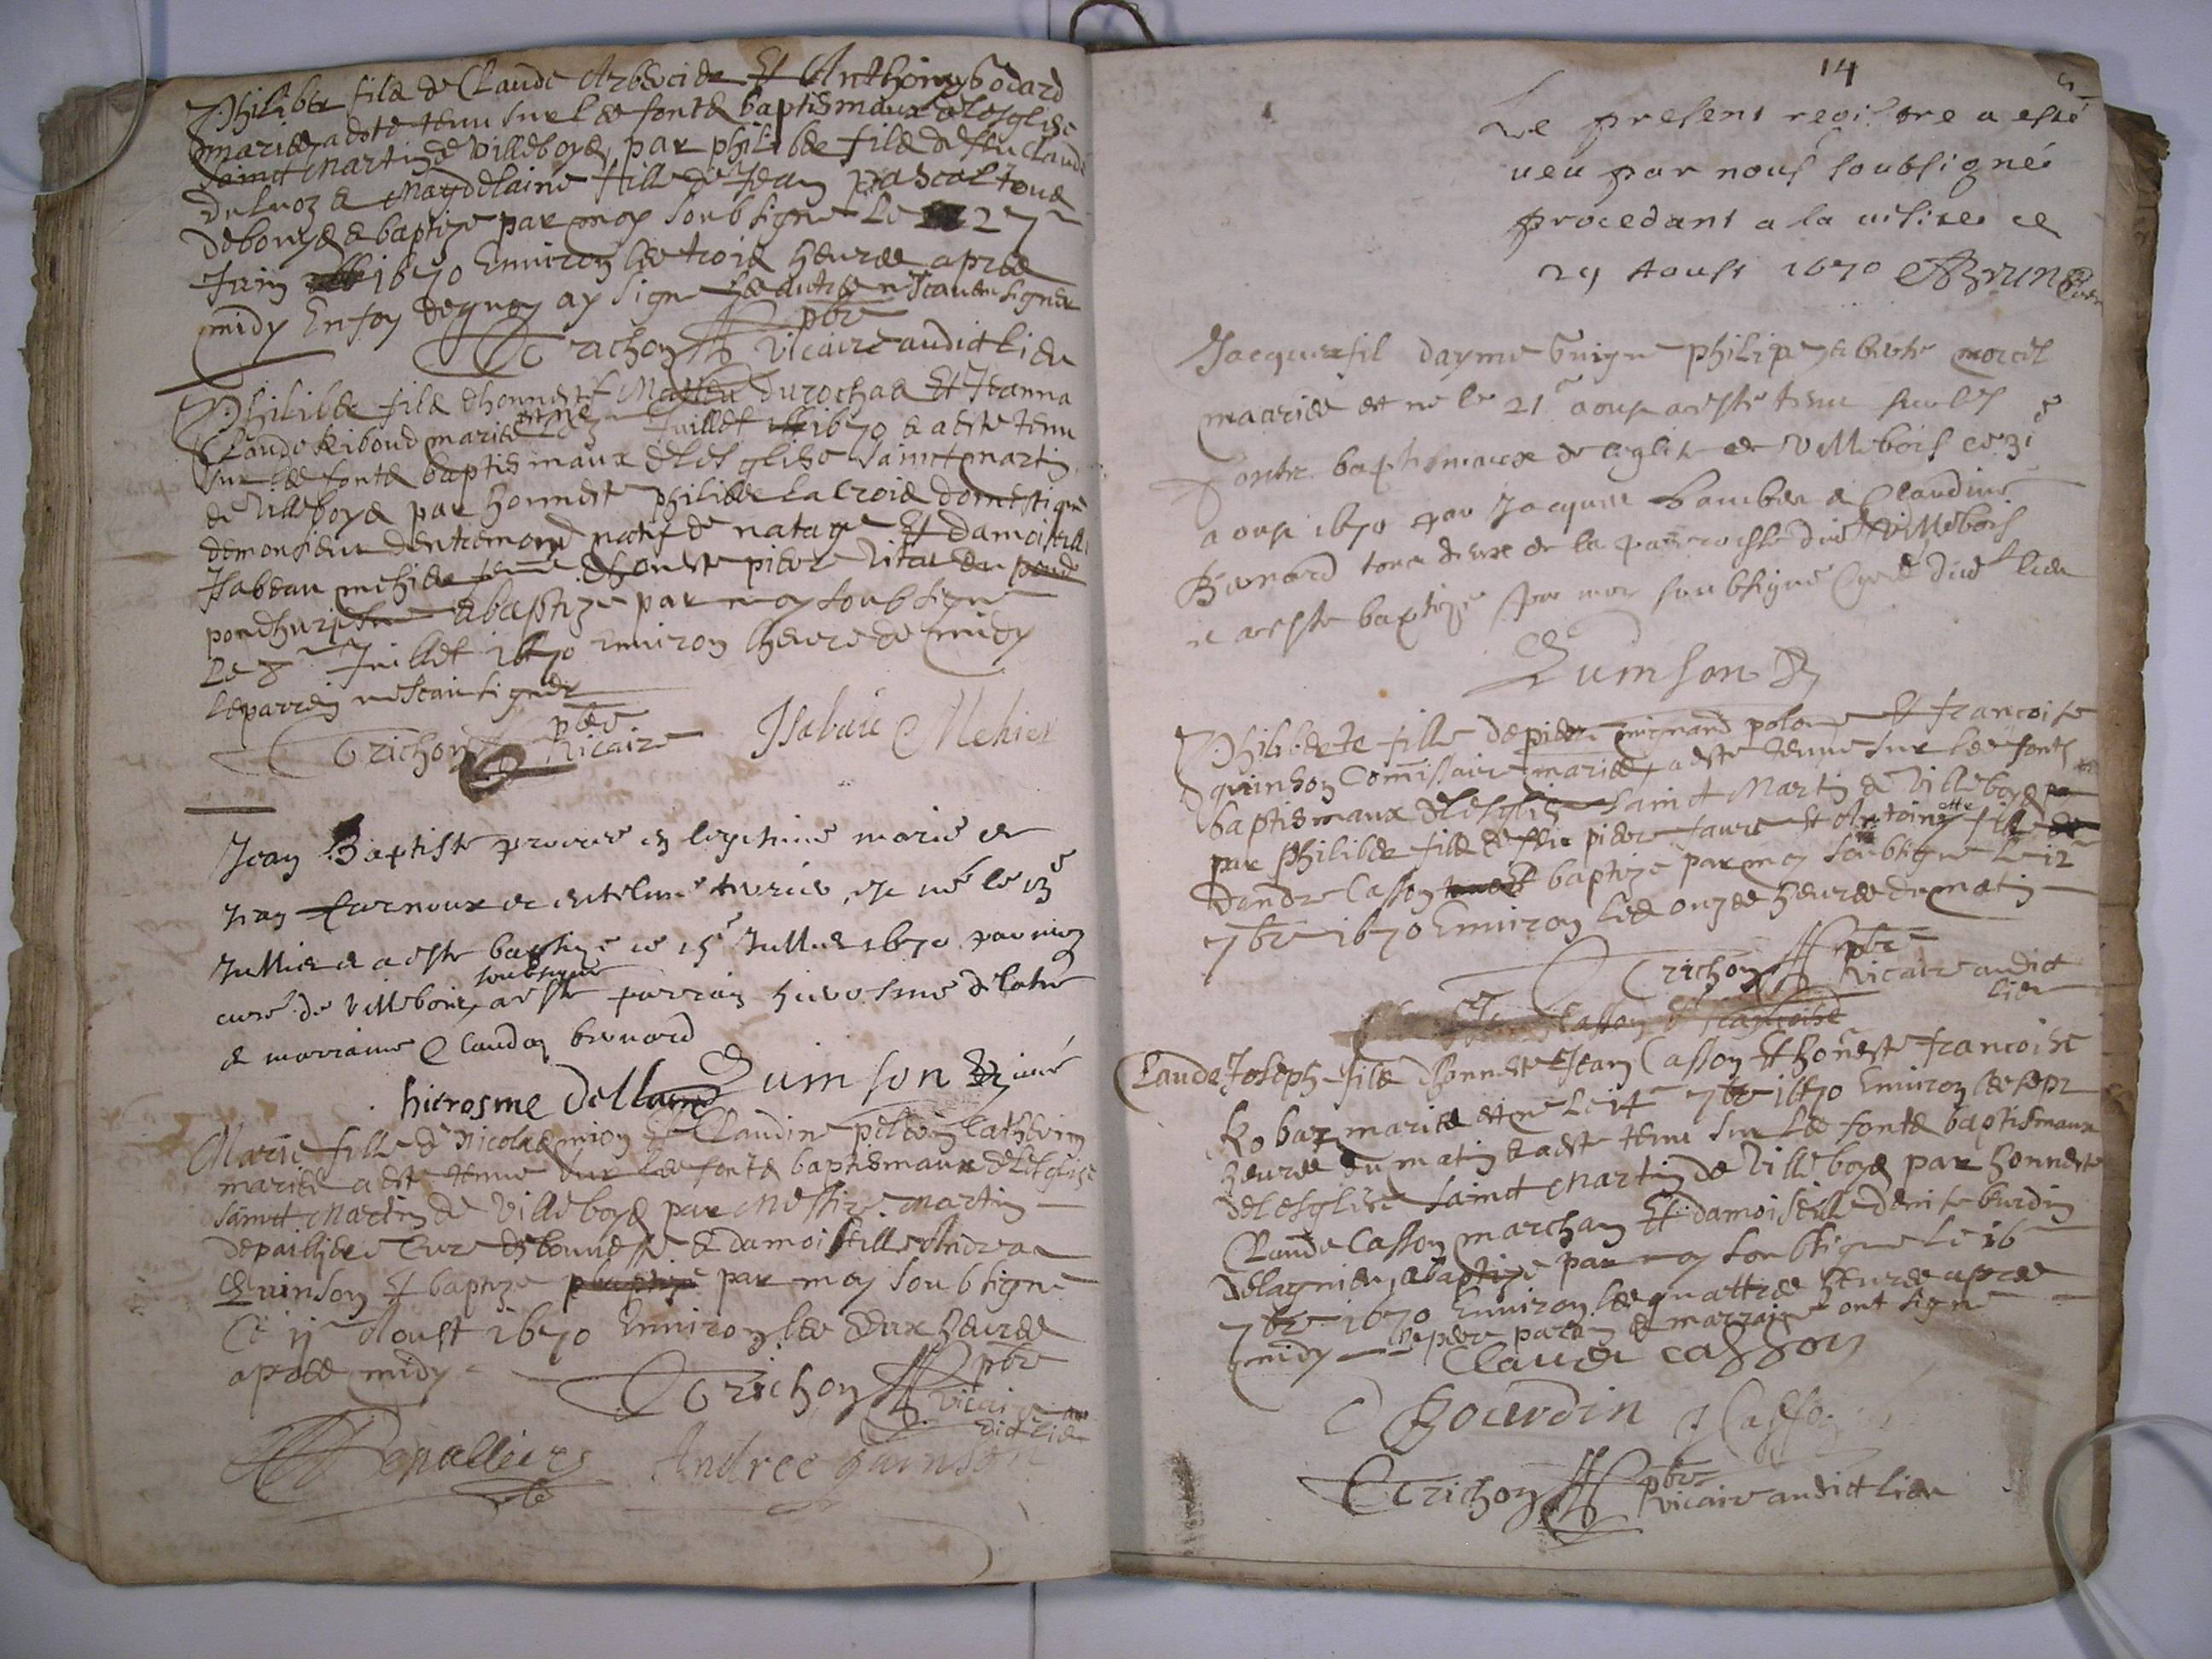 Philiber filz de Claude Arbocier Et Anthoiny Godard
mariez a este tenu sur lee fontz baptismaux de lesglise
Sainct Martin de Villeboys, par philiber filz de feu Claude
Maydelaine fille de Jean pascal tous
de boys & baptize par moy soubsigne le 27e
Juin 1670 Environ lee trois heuree apree
midy En foy de quoy ay signe lee autree n scauent signer
Trichon pbre
vicaire audict lieu
Philiber filz dhonneste durochas Et Jeanna
Claude Riboud mariee est ne Juillet 1670 & a este tenu
sur lee fontz baptismaux de lesglise Sainct martin
de Villeboys par honneste philiber lacroix domestique
de monsieur dentremond natif de natage Et damoiselle
Isabeau mehier feme dhoneste piere
& baptize par moy soubsigne
Le 8e Juillet 1670 environ lheure de midy
le parrein ne scait signer
Trichon pbre
Vicaire Isabau Mehier
Jean Baptiste procree en legitime mariage de
Jean fornoux et est né le 13e
Jullier & a este baptizé ce 15e Jullier 1670 par moy
curé de Villebois soubsigné a este parrain hierosme delatre
& marraine Claudaz bernard
hierosme Quimson curé
Marie fille de Nicolas mion & Claudine
mariee a este tenue sur lee fontz baptismaux de lesglise
Sainct Martin de Villeboys par Messire Martin
depaillier Cure & damoiselle Andrea
Quinson Et baptize par moy soubsigne
Ce 11e Aoust 1670 Environ lee deux heuree
apree midy
Trichon pbre
vicaire au
dict lieu
Depallier Andree quinson
14
Le present registre a esté
ueu par nous soubsigné
procedant a la uisite ce
29 Aoust 1670 Brun
Jacques fil dayme Guigne philipe
mariee est né le 21e aoust a esté tenu sur les
fontz baptismaux de leglise de Villebois ce 31e
aoust 1670 par Jacques & Claudine
Bernard tous deux de la parroisse dud Villebois
& a este baptizé par moy soubsigné curé dud lieu
Quimson
Philiberte fille de piere mignard Et francoise
quinson Commissaire mariee, a este tenue sur lee fontz
baptismaux de lesglise Sainct Martin de Villeboys
par Philiber filz de feu piere faure Et Antoinette fille
dandre Casson baptize par moy soubsigne le 12e
7bre 1670 Environ lee onze heuree du matin
Trichon pbre
Vicaire audict
lieu
Casson & francoise
Claude Joseph filz dhonneste Jean Casson Et honeste francoise
Robaz mariee est ne le 14e 7bre 1670 Environ lee sept
heuree du matin & a este tenu sur lee fontz baptismaux
de lesglise Sainct Martin de Villeboys par honneste
Claude Casson marchan Et damoiselle denise burdin
de lagnieu, & baptize par moy soubsigne le 16e
7bre 1670 Environ lee quattre heuree apree
midy le pere parrin & marraine ont signe
Claude casson
Bourdin J Casson
Trichon pbre
vicaire audict lieu